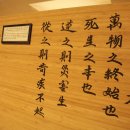 萬物之終始也
死生之本也
逆之則災害生
從之則苛疾不起